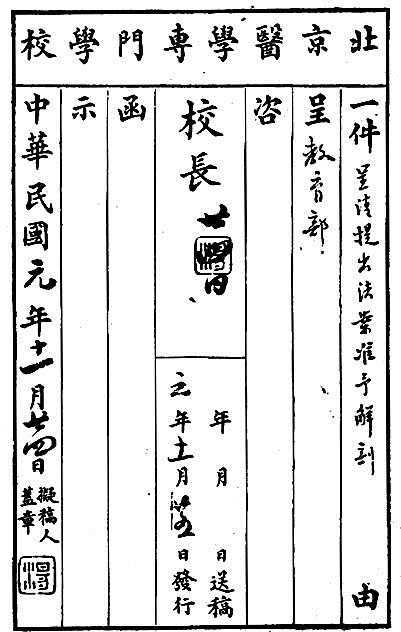 北京醫學專門學校
一件呈請提出法案准予解剖由
呈教育部
咨
校長
廿四日
年 月 日送稿
元年十一月廿五日發行
函
示
中華民國元年十一月廿四日擬稿人蓋章